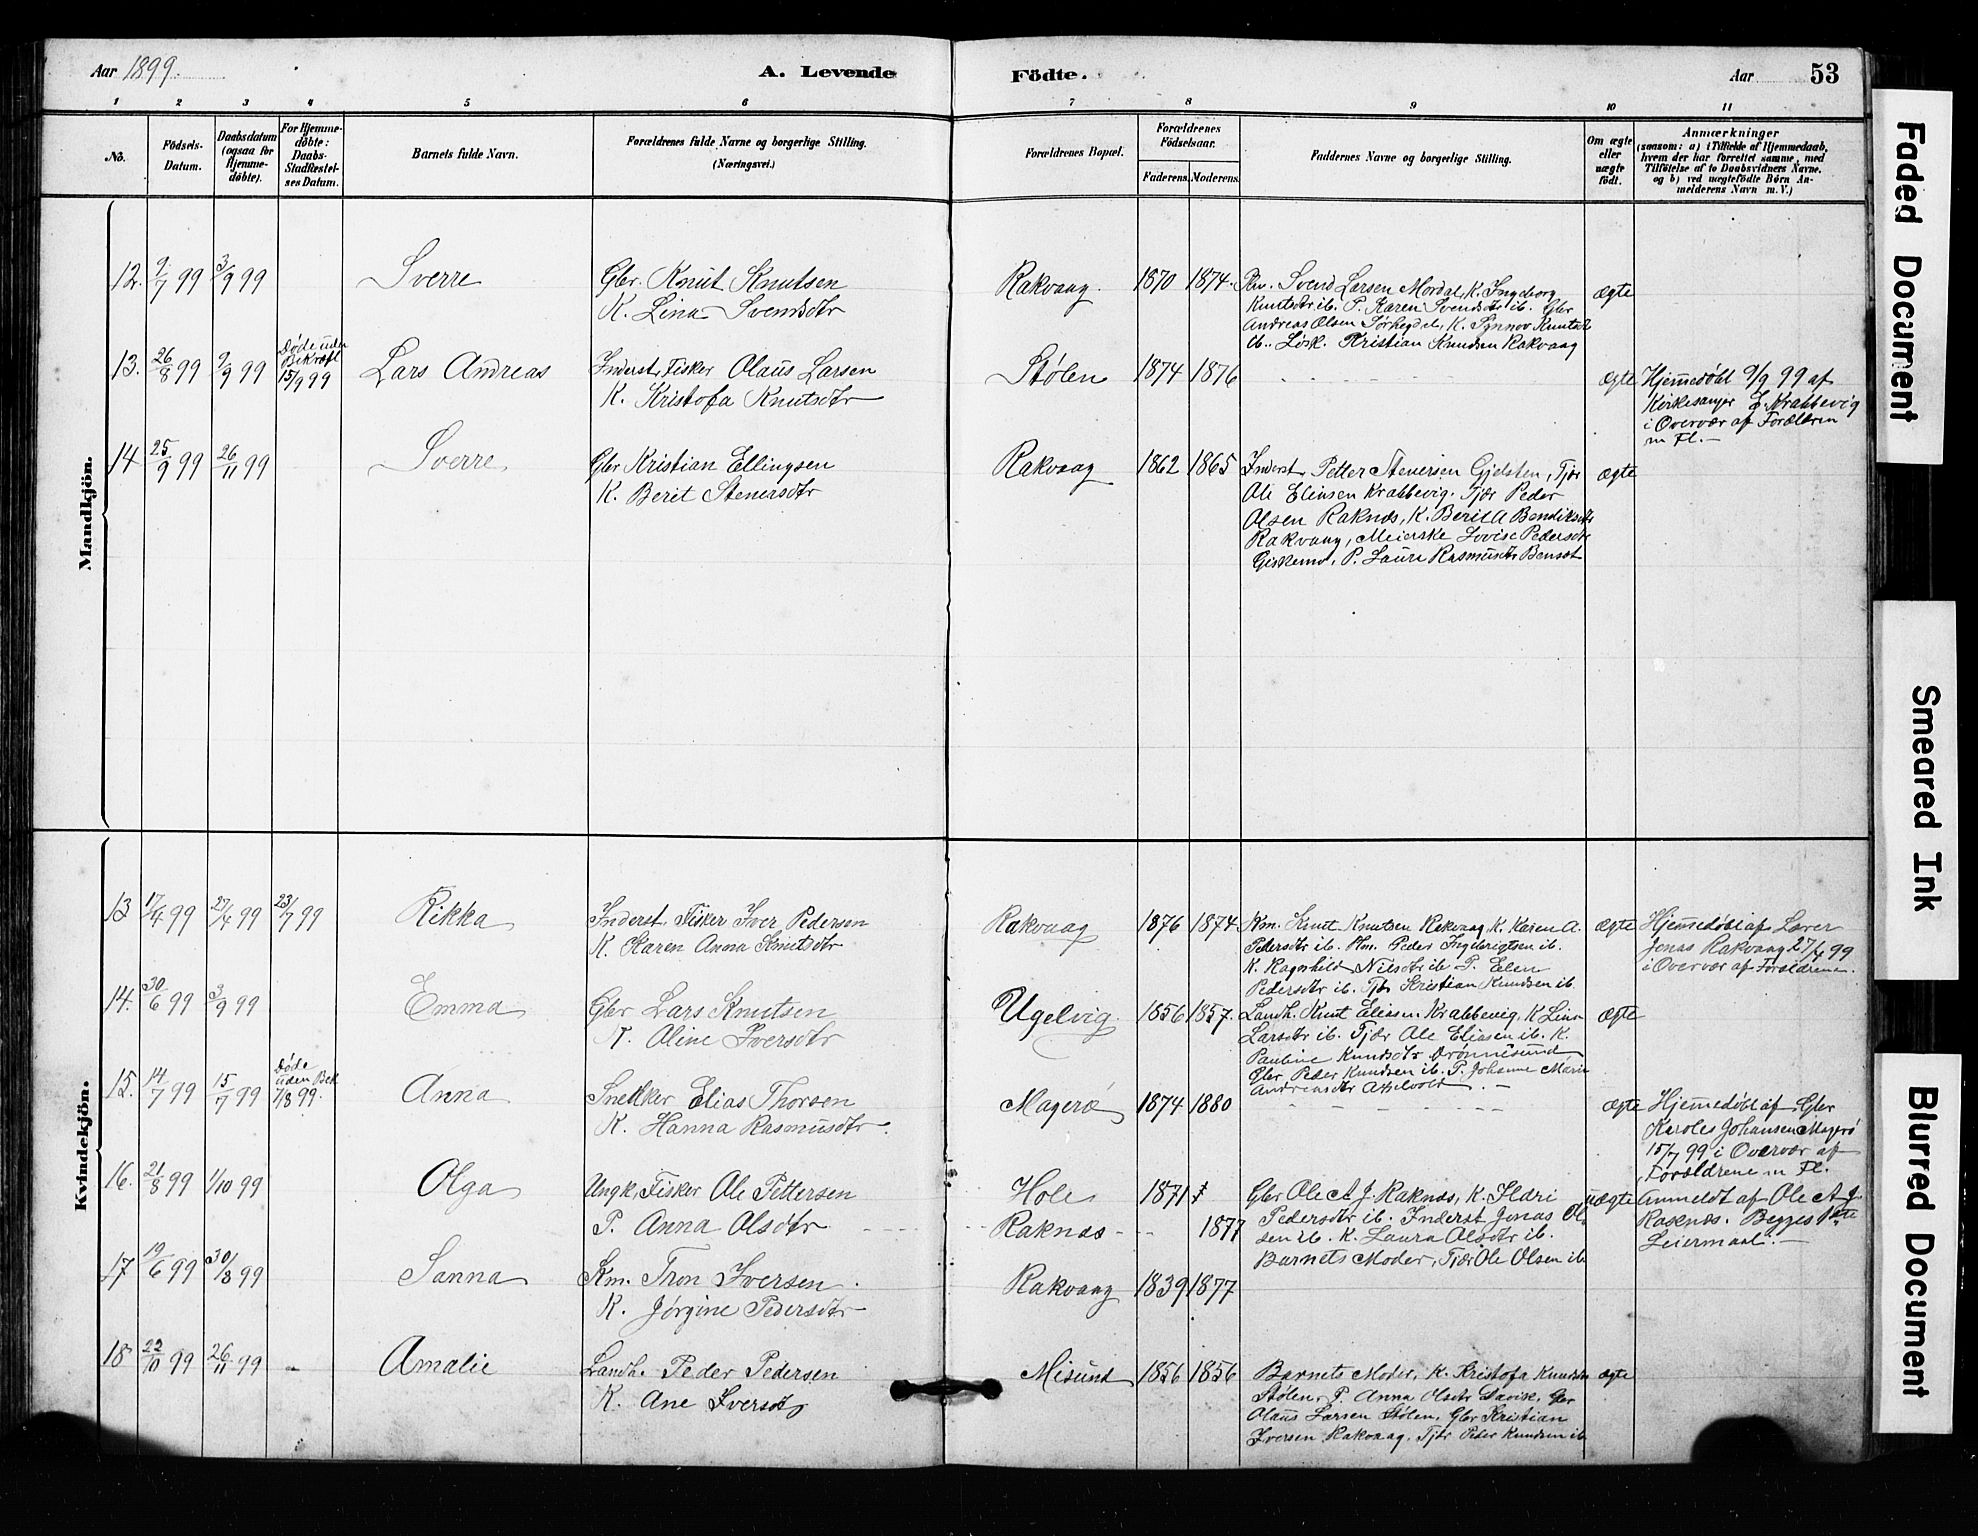 Aar 1899.
A. Levende
Födte.
Aar
53
1 2 3 4 5 6 7 8 9 10 11
No.
Födsels-
Datum.
Daabsdatum
(ogsaa for
Hjemme-
döbte).
For Hjemme-
døbte:
Daabs-
Stadfæstel-
ses Datum.
Barnets fulde Navn.
Forældrenes fulde Navne og borgerlige Stilling.
(Næringsvei.)
Forældrenes Bopæl.
Forældrenes
Födselsaar.
Faderens. Moderens.
Faddernes Navne og borgerlige Stilling.
Om ægte
eller
uægte
födt.
Anmærkninger
(saasom: a) i Tilfælde af Hjemmedaab,
hvem der har forrettet samme, med
Tilföielse af to Daabsvidners Navne.
og b) ved uægtefödte Börn An-
melderens Navn m. V.)
Mandkjön.
12. 9/7 99 3/9 99 Sverre
Gbr. Knut Knutsen
K. Lina Svendsdtr
Rakvaag. 1870 1874.
Svend Larsen Mordal, K. Ingeborg
Knutsdtr ib. P. Karen Svendsdtr ib. Gbr
Andreas Olsen K. Synnøv Knutsdt
ib. Løsk. Kristian Knudsen Rakvaag
ægte
13. 26/8 99 9/9 99
Døde uden
Bekræft
15/9 99
Lars Andreas
Inderst, Fisker Olaus Larsen
K. Kristofa Knutsdtr
Stølen 1874 1876
ægte
Hjemmedøbt 9/9 99 af
Kirkesanger E. Krabbevig
i Overvær af Forældren
m Fl. -
14 25/9 99 26/11 99 Sverre
Gbr Kristian Ellingsen
K. Berit Stenersdtr
Rakvaag 1862 1865
Inderst Petter Stenersen Gjelsten, Tjr
Ole Eliasen Krabbevig. Tjr Peder
Olsen Raknæs, K. Berit A Bendiksdtr
Rakvaag, Meierske Lovise Pedersdtr
P. Laura Rasmusdtr
ægte
Kvindekjön.
13 17/4 99 27/4 99 23/7 99 Rikka
Inderst Fisker Iver Pedersen
K. Karen Anna Knutsdtr
Rakvaag 1876 1874
Km. Knut Knutsen Rakvaag, K. Karen A.
Pedersdtr ib. Peder Ingebrigtsen ib.
K. Ragnhild Nilsdtr ib P. Elen
Pedersdtr ib. Tjr Kristian Knudsen ib
ægte
Hjemmedøbt af Lærer
Jonas Rakvaag 27/4 99
i Overvær af Forældrene.
14. 30/6 99 3/9 99 Emma
Gbr Lars Knutsen
K. Oline Iversdtr
Ugelvig 1856 1857.
Landh. Knut Eliasen Krabbevig, K Lina
Larsdtr ib. Tjr Ole Eliasen ib. K.
Pauline Knudsdtr Drønnesund
Gbr Peder Knudsen ib. P. Johanne Marie
Andreasdtr
ægte
15. 14/7 99 15/7 99
Døde
uden Bek
7/8 99.
Anna
Snedker Elias Thorsen
K. Hanna Rasmusdtr.
Magerö 1874 1880
ægte
Hjemmedøbt af Gbr
Karoles Johansen Magerö
15/7 99 i Overvær af
Forældrene m Fl.
16. 21/8 99 1/10 99 Olga
Ungk. Fisker Ole Pettersen
P. Anna Olsdtr
Hole 1871
Raknæs 1877
Gbr Ole A J. Raknæs, K. Ildri
Pedersdtr ib. Inderst Jonas Ol
sen ib. K. Laura Olsdtr ib.
Barnets Moder, Tjr Ole Olsen ib
uægte
Anmeldt af Ole A J.
Raknæs. Begges 1ste
Leiermaal. -
17 19/6 99 30/8 99 Sanna
Km. Tron Iversen
K. Jørgine Pedersdtr
Rakvaag 1839 1877
18 22/10 99 26/11 99 Amalie
Landh. Peder Pedersen
K. Ane Iversdtr
Misund 1856 1856
Barnets Moder, K. Kristofa Knudsdtr
Stølen, P Anna Olsdtr Gbr
Olaus Larsen Stølen, Gbr Kristian
Iversen Rakvaag. Tjr Peder Knudsen ib
ægte
Faded Document
Smeared Ink
Blurred Document